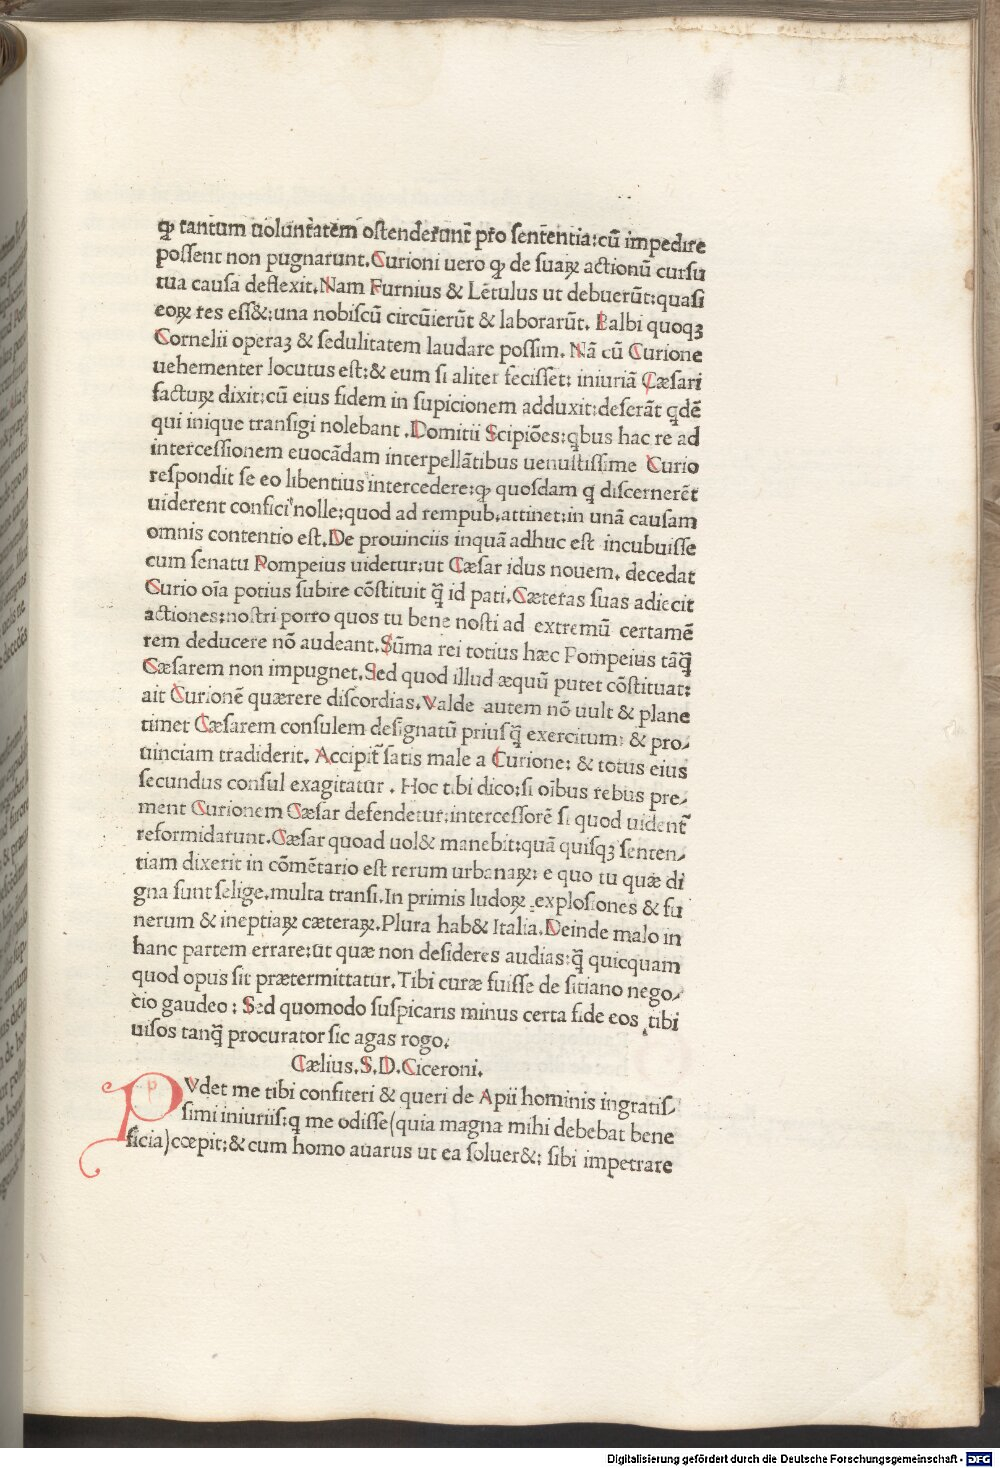 ꝙ tantum uoluntatem ostenderunt pro sententia:cū impedire
possent non pugnarunt.Curioni uero ꝙ de suaꝝ actionū cursu
tua causa deflexit.Nam Furnius & Lētulus ut debuerūt:quasi
eoꝝ res ess&:una nobiscū circūierūt & laborarūt. Balbi quoqꝫ
Cornelii operaꝫ & sedulitatem laudare possim. Nā cū Curione
uehementer locutus est:& eum si aliter fecisset: iniuriā Cæsari
facturꝝ dixit:cū eius fidem in supicionem adduxit:deserāt q̄dē
qui inique transigi nolebant .Domitii Scipiōes:qbus hac re ad
intercessionem euocādam interpellātibus uenustissime Curio
respondit se eo libentius intercedere:ꝙ quosdam q discernerēt
uiderent confici nolle:quod ad rempub.attinet:in unā causam
omnis contentio est.De prouinciis inquā adhuc est incubuisse
cum senatu Pompeius uidetur:ut Cæsar idus nouem. decedat
Curio oīa potius subire cōstituit q̄ id pati.Cæteras suas adiecit
actiones:nostri porro quos tu bene nosti ad extremū certamē
rem deducere nō audeant.Sūma rei totius hæc Pompeius tāq̄
Cæsarem non impugnet.Sed quod illud æquū putet cōstituat:
ait Curionē quærere discordias.Valde autem nō uult & plane
timet Cæsarem consulem designatū priusq̄ exercitum: & pro-
uinciam tradiderit. Accipit̄ satis male a Curione: & totus eius
secundus consul exagitatur . Hoc tibi dico:si oībus rebus pre-
ment Curionem Cæsar defendetur:intercessorē si quod uident̄
reformidarunt.Cæsar quoad uol& manebit:quā quisqꝫ senten-
tiam dixerit in cōmētario est rerum urbanaꝝ: e quo tu quæ di
gna sunt selige.multa transi.In primis ludoꝝ explosiones & fu
nerum & ineptiaꝝ cæteraꝝ.Plura hab& Italia.Deinde malo in
hanc partem errare:ut quæ non desideres audias:q̄ quicquam
quod opus sit prætermittatur.Tibi curæ fuisse de sitiano nego-
cio gaudeo: Sed quomodo suspicaris minus certa fide eos tibi
uisos tanq̄ procurator sic agas rogo.
Cælius.S.D.Ciceroni.
PVdet me tibi confiteri & queri de Apii hominis ingratis-
simi iniuriis:q me odisse(quia magna mihi debebat bene
ficia)cœpit:& cum homo auarus ut ea soluer&: sibi impetrare
Digitalisierung gefördert durch die Deutsche Forschungsgemeinschaft - DFG